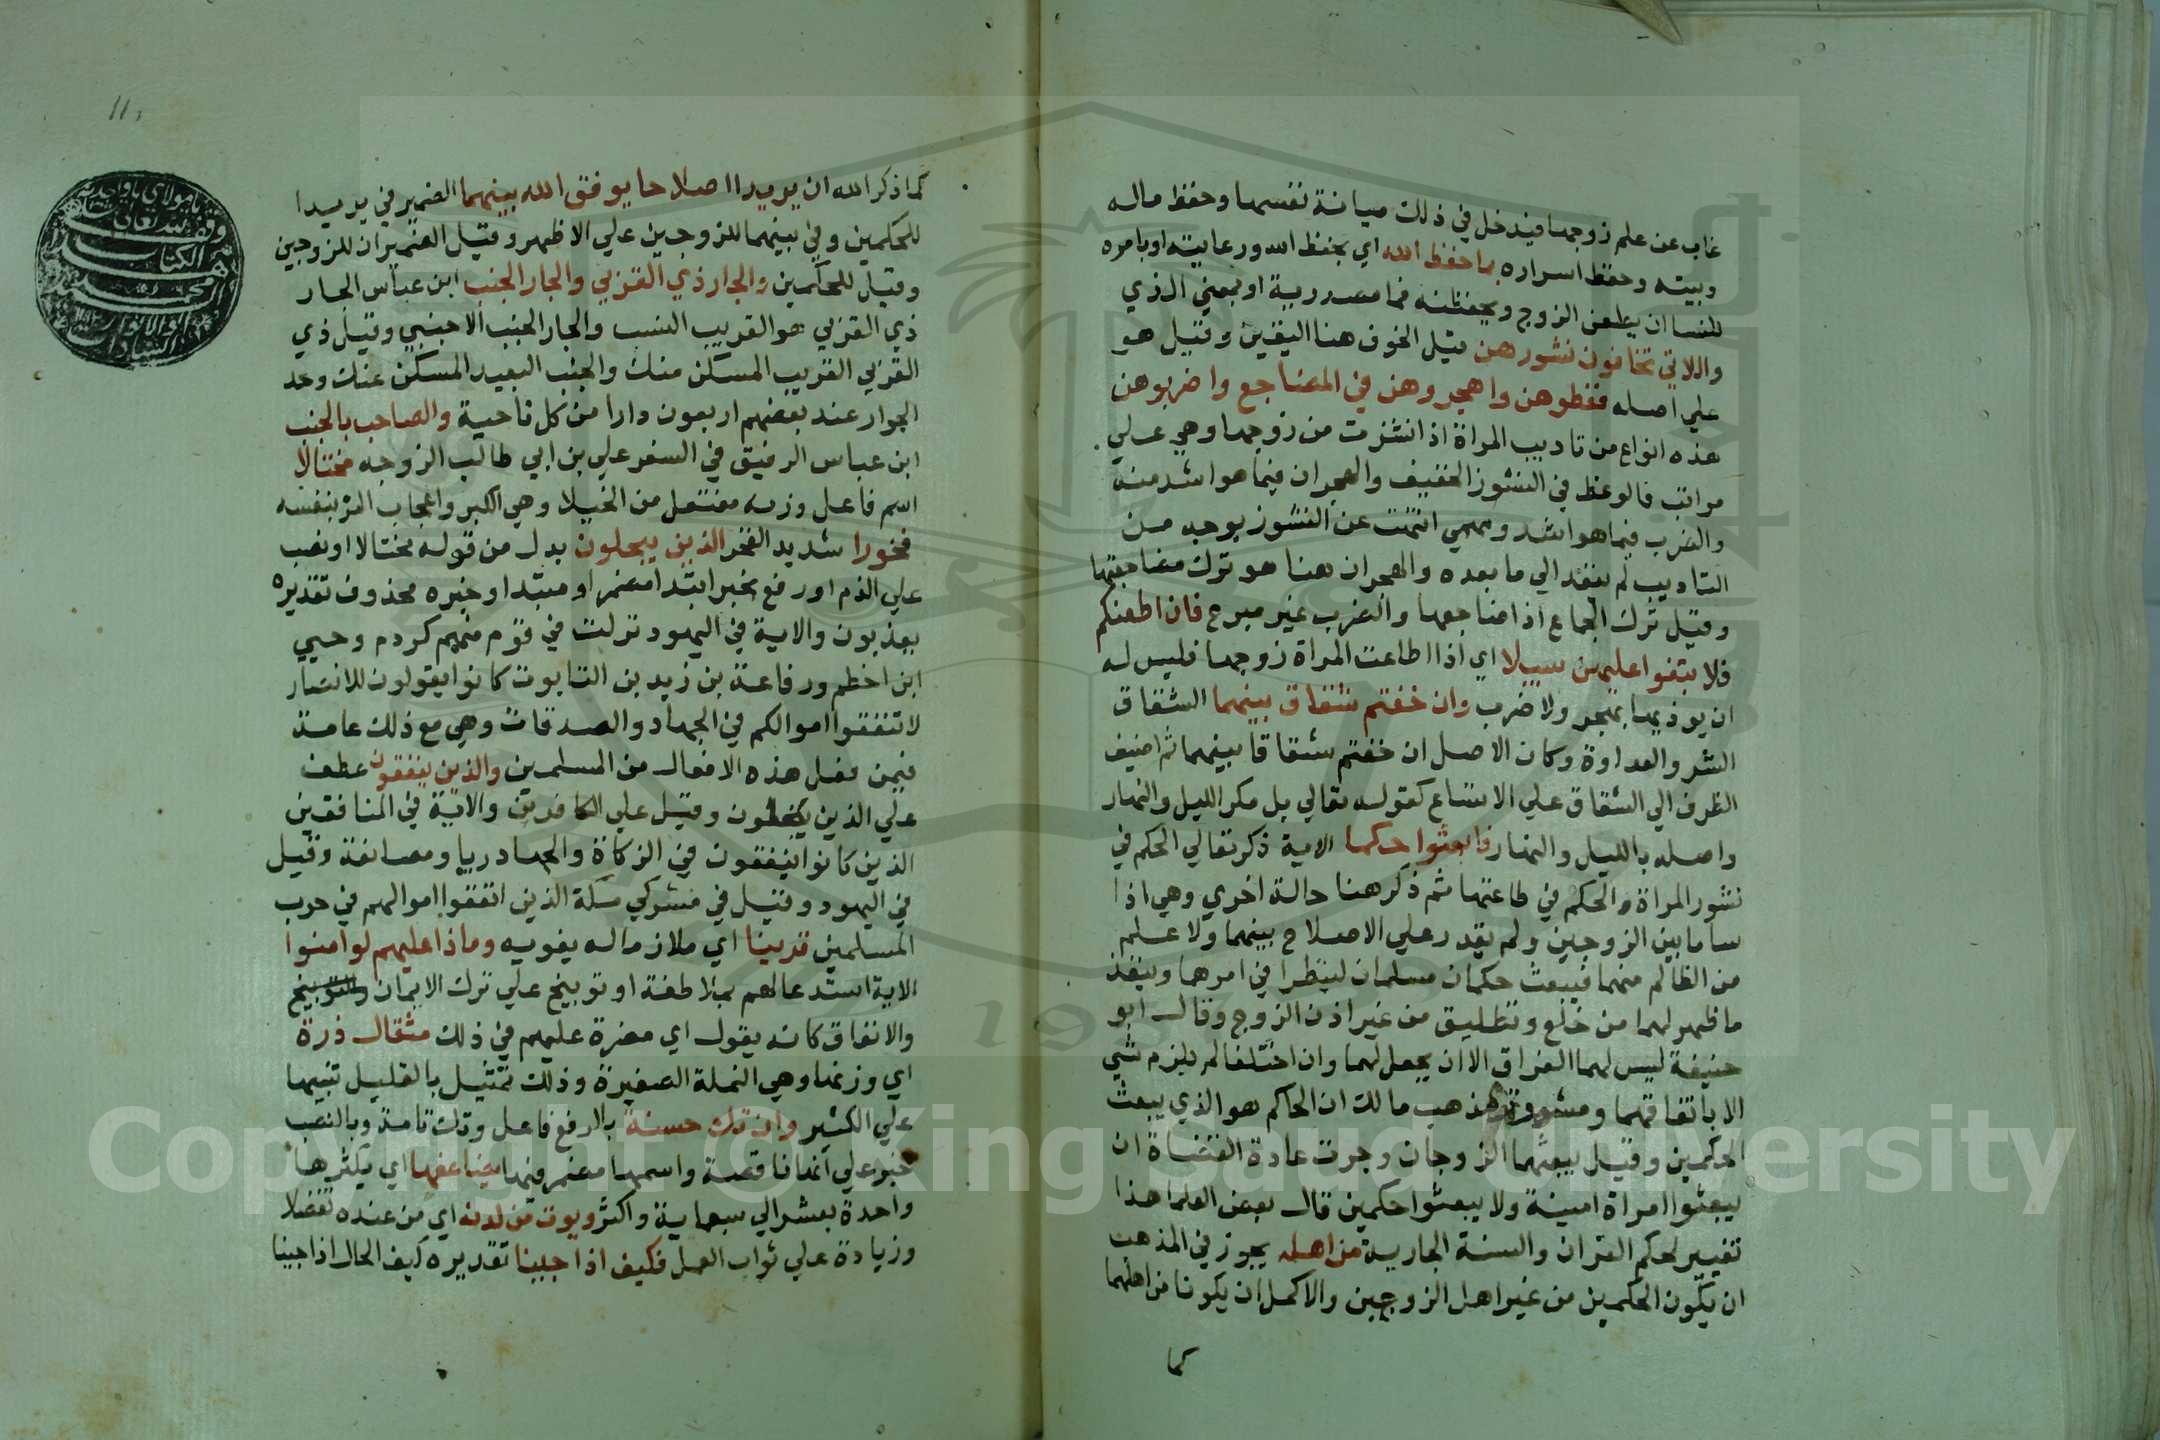 غاب عن علم زوجها فيدخل في ذلك صيانة نفسها وحفظ ماله
وبيته وحفظ اسراره بما حفظ الله اي بحفظ الله ورعايته او بامره
للنسا ان يطعن الزوج ويحفظنه فما مصدرية او بمعني الذي
واللاتي تخافون نشوزهن قيل الخوف هنا اليقين وقيل هو
علي اصله فعظوهن واهجروهن في المضاجع واضربوهن
هذه انواع من تاديب المراة اذا نشزت من زوجها وهي علي
مراتب فالوعظ في النشوز الخفيف والهجران فيما هو اشد منه
والضرب فيما هو اشد ومتي انتهت عن النشوز بوجه من
التاديب لم يتعد الي ما بعده والهجران هنا هو ترك مضاجعتها
وقيل ترك الجماع اذا ضاجعها والضرب غير مبرح فان اطعنكم
فلا تبغوا عليهن سبيلا اي اذا اطاعت المراة زوجها فليس له
ان يوذيها بهجر ولا ضرب وان خفتم شقاق بينهما الشقاق
الشر والعداوة وكان الاصل ان خفتم شقاقا بينهما ثم اضيف
الظرف الي الشقاق علي الاتساع كقوله تعالي بل مكر الليل والنهار
واصله بالليل والنهار فابعثوا حكما الاية ذكر تعالي الحكم في
نشوز المراة والحكم في طاعتها ثم ذكر هنا حالة اخري وهي اذا
سا ما بين الزوجين ولم يقدر علي الاصلاح بينهما ولا علم
من الظالم منهما فيبعث حكمان مسلمان لينظرا في امرهما وينفذ
ما ظهر لهما من خلع وتطليق من غير اذن الزوج وقال ابو
حنيفة ليس لهما الفراق الا ان يجعل لهما وان اختلفا لم يلزم شي
الا باتفاقهما ومشهور مذهب مالك ان الحاكم هو الذي يبعث
الحكمين وقيل يبعثهما الزوجان وجرت عادة القضاة ان
يبعثوا امراة امينة ولا يبعثوا حكمين قال بعض العلما هذا
تغيير لحكم القران والسنة الجارية من اهله يجوز في المذهب
ان يكون الحكمين من غير اهل الزوجين والاكمل ان يكونا من اهلهما
كما
كما ذكر الله ان يريدا اصلاحا يوفق الله بينهما الضمير في يريدا
للحكمين وفي بينهما للزوجين علي الاظهر وقيل الضميران للزوجين
وقيل للحكمين والجار ذي القربي والجار الجنب ابن عباس الجار
ذي القربي هو القريب النسب والجار الجنب الاجنبي وقيل ذي
القربي القريب المسكن منك والجنب البعيد المسكن عنك وحد
الجوار عند بعضهم اربعون دارا من كل ناحية والصاحب بالجنب
ابن عباس الرفيق في السفر علي بن ابي طالب الزوجه مختالا
اسم فاعل وزنه مفتعل من الخيلا وهي الكبر واعجاب المرء بنفسه
فخورا شديد الفخر الذين يبخلون بدل من قوله مختالا او نصب
علي الذم او رفع بخبر ابتدا مضمر او مبتدا وخبره محذوف تقديره
يعذبون والاية في اليهود نزلت في قوم منهم كردم وحيي
ابن اخطم ورفاعة بن زيد بن التابوت كانوا يقولون للانصار
لا تنفقوا اموالكم في الجهاد والصدقات وهي مع ذلك عامة
فيمن فعل هذه الافعال من المسلمين والذين ينفقون عطف
علي الذين يبخلون وقيل علي الكافرين والاية في المنافقين
الذين كانوا ينفقون في الزكاة والجهاد ريا ومصانعة وقيل
في اليهود وقيل في مشركي مكة الذين انفقوا اموالهم في حرب
المسلمين قرينا اي ملازما له يغويه وماذا عليهم لو امنوا
الاية استدعا لهم بملاطفة او توبيخ علي ترك الايمان والتوبيخ
والانفاق كانه يقول اي مضرة عليهم في ذلك مثقال ذرة
اي وزنها وهي النملة الصغيرة وذلك تمثيل بالقليل تنبيها
علي الكثير وان تك حسنة بالرفع فاعل وتك تامة وبالنصب
خبر علي انها ناقصة واسمها مضمر فيها يضاعفها اي يكثرها
واحدة بعشر الي سبعماية واكثر ويوت من لدنه اي من عنده تفضلا
وزيادة علي ثواب العمل فكيف اذا جينا تقديره كيف الحال اذا جينا
Copyright © King Saud University